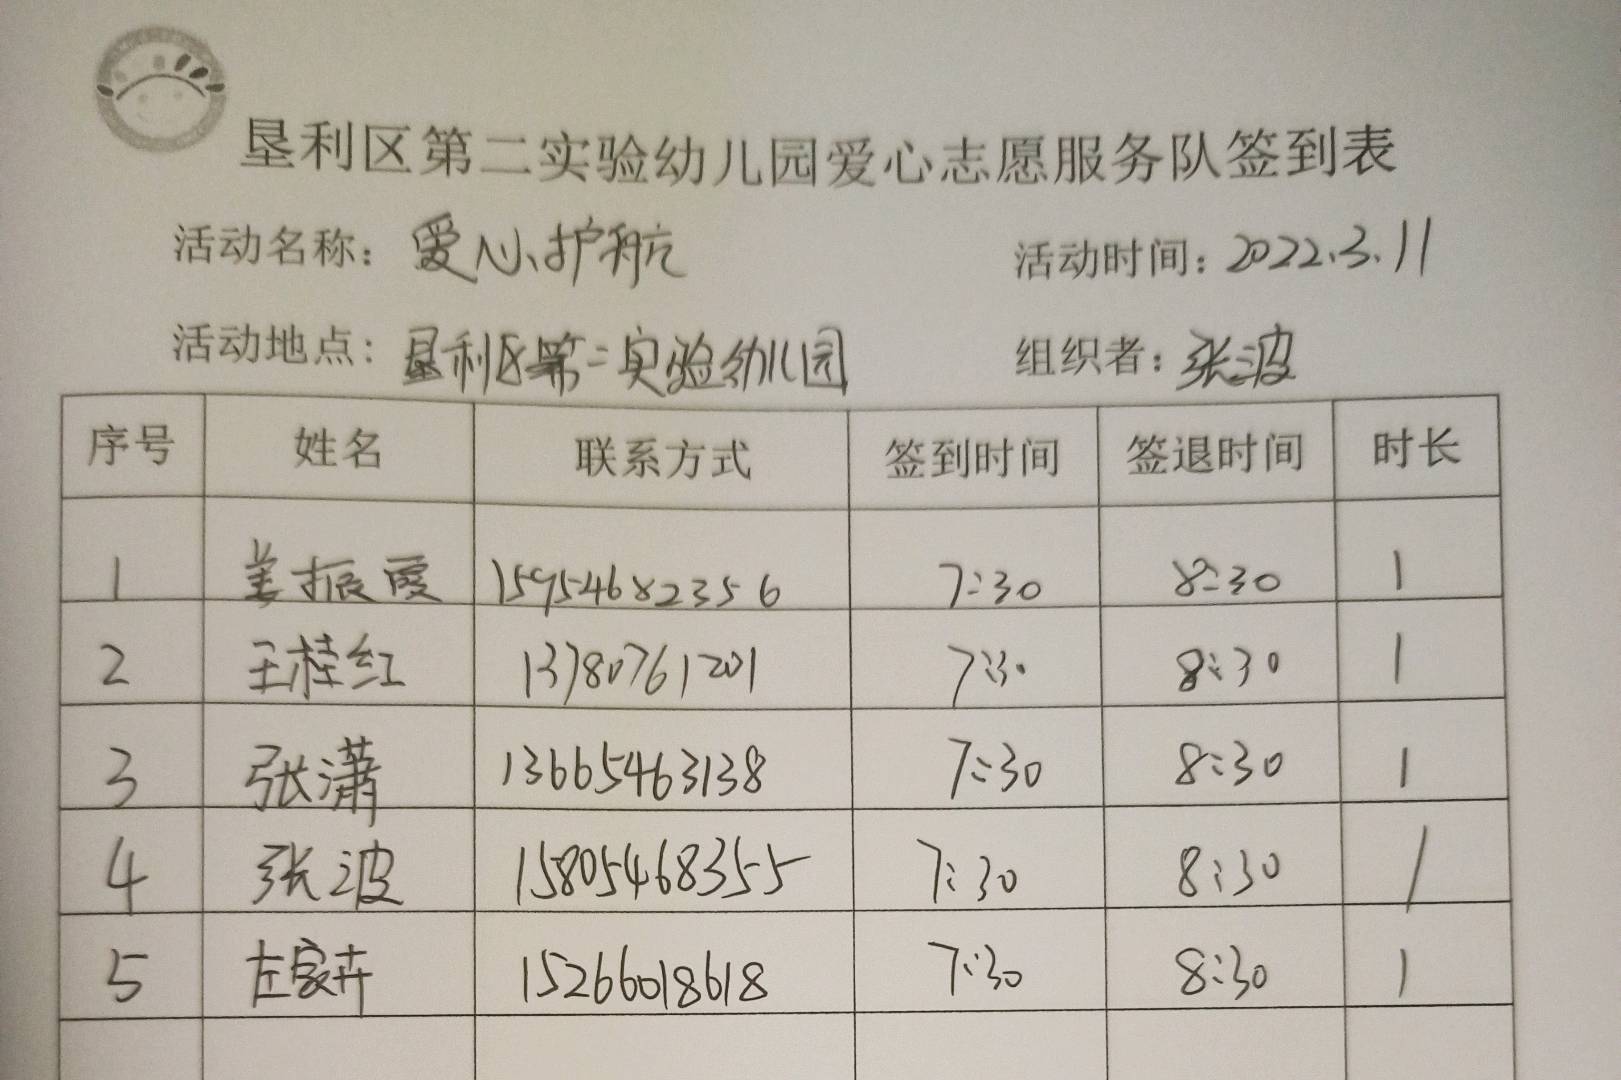 垦利区第二实验幼儿园爱心志愿服务队签到表
活动名称：爱心护航 活动时间：2022.3.11
活动地点：垦利区第二实验幼儿园 组织者：张波
序号 姓名 联系方式 签到时间 签退时间 时长
1 姜振霞 15954682356 7:30 8:30 1
2 王桂红 13780761201 7:30 8:30 1
3 张潇 13665463138 7:30 8:30 1
4 张波 15805468355 7:30 8:30 1
5 左家卉 15266018618 7:30 8:30 1